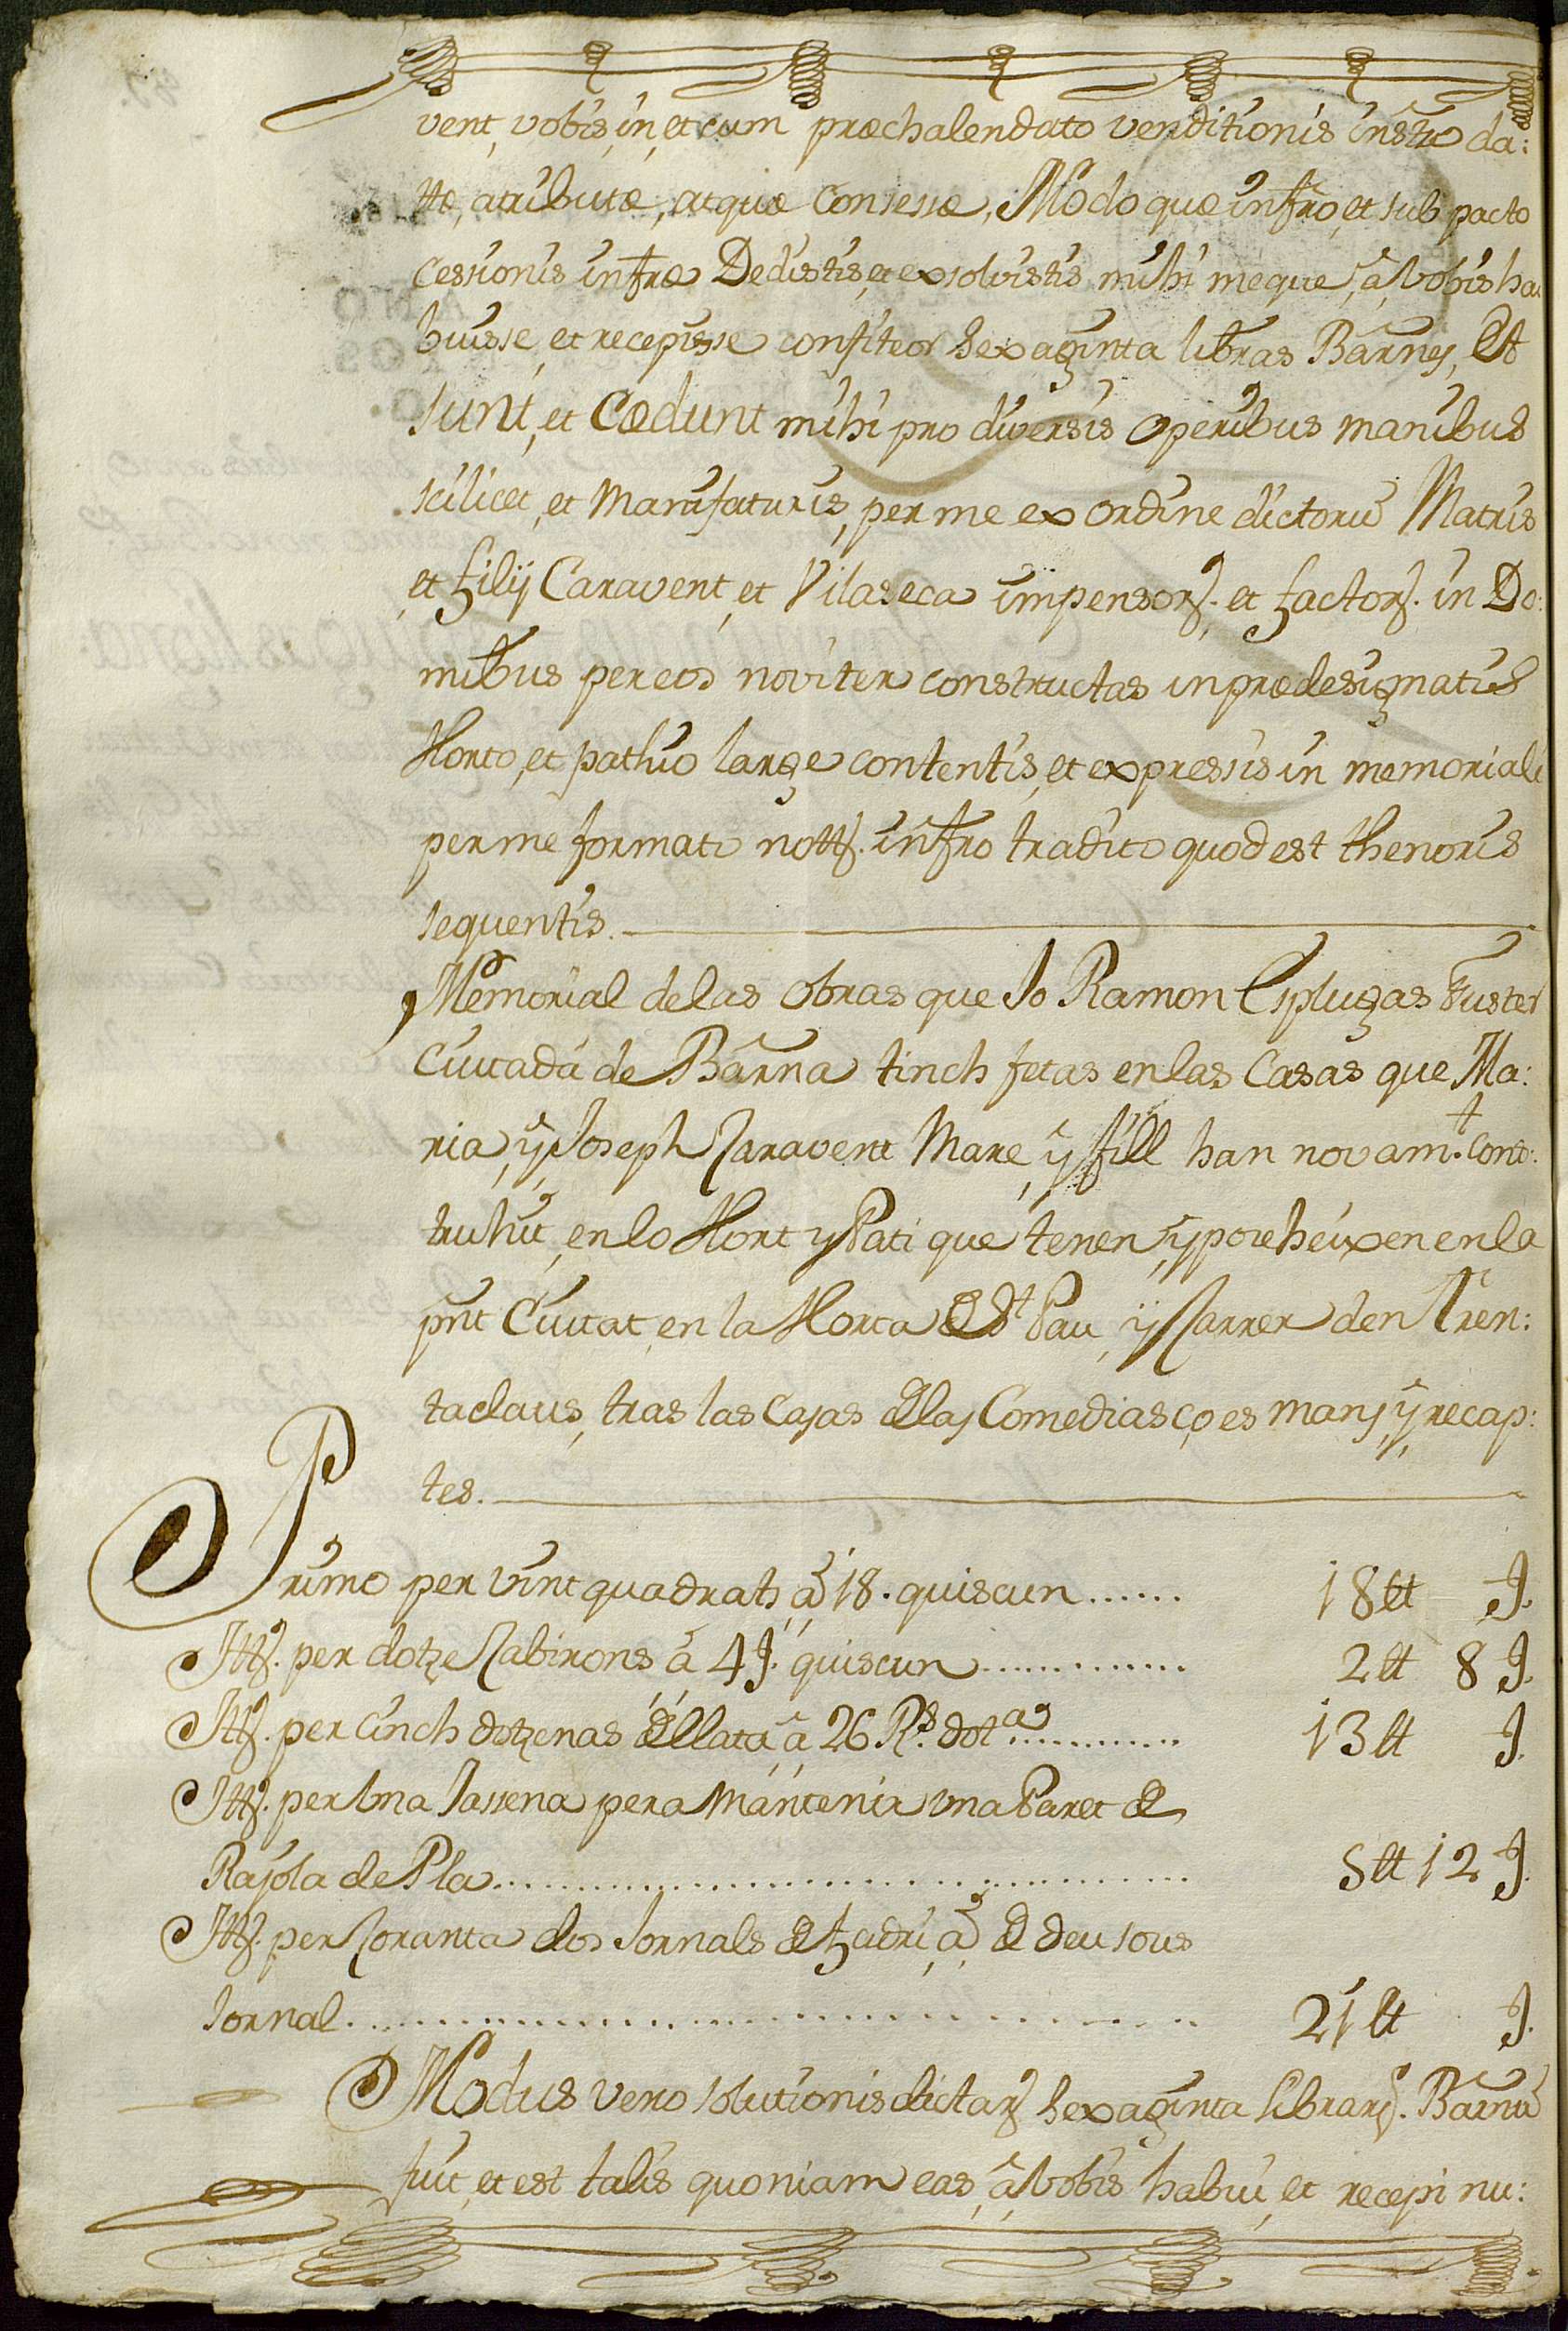 vent, vobis, in, et cum præchalendato venditionis instro da:
ttæ, atributæ, atque consessæ, Modo quæ infro, et sub pacto
cessionis infræ Dedistis, et exsolvistis mihi meque, à, Vobis ha
buisse, et recepisse confiteor Sexaginta libras Barnes, Et
sunt, et Cædunt mihi pro diversis Operibus manibus
scilicet, et Manufaturis, per me ex Ordine dictoru Matris
et filÿ Caravent, et Vilaseca impensors. et factors. in Do:
mibus per eos noviter constructas in prædesignatis
Horto, et pathio large contentis, et expressis in memoriali
per me formati notts. infro tradito quod est thenoris
sequentis.
Memorial de las Obras que Jo Ramon Esplugas Fuster
Ciutadá de Barna tinch fetas en las Casas que Ma:
ria, ÿ Joseph Caravent Mare, ÿ fill han novam.t cons:
truhit, en lo Hort y Pati que tenen, ÿ poseheixen en la
pnt Ciutat, en la Horta de St Pau, ÿ Carrer den Tren:
taclaus, tras las Casas de las Comedias ço es mans, ÿ recap:
tes.
Primo per vint quadrats, à 18. quiscun ...... 18 tt J.
Itts. per dotze Cabirons à 4 J. quiscun ............ 2 tt 8 J.
Itts. per cinch dotzenas de llata à 26 Rs. dota ............ 13 tt J.
Itts. per Una Jassena pera Mantenir una Paret de
Rajola de Pla .................................... 5 tt 12 J.
Itts. per Coranta dos Jornals de fadrí, à de deu sous
Jornal .................................... 21 tt J.
Modus vero solutionis dictars Sexaginta librars. Barnu
fuit, et est talis quoniam eas, à, Vobis habui, et recepi nu: